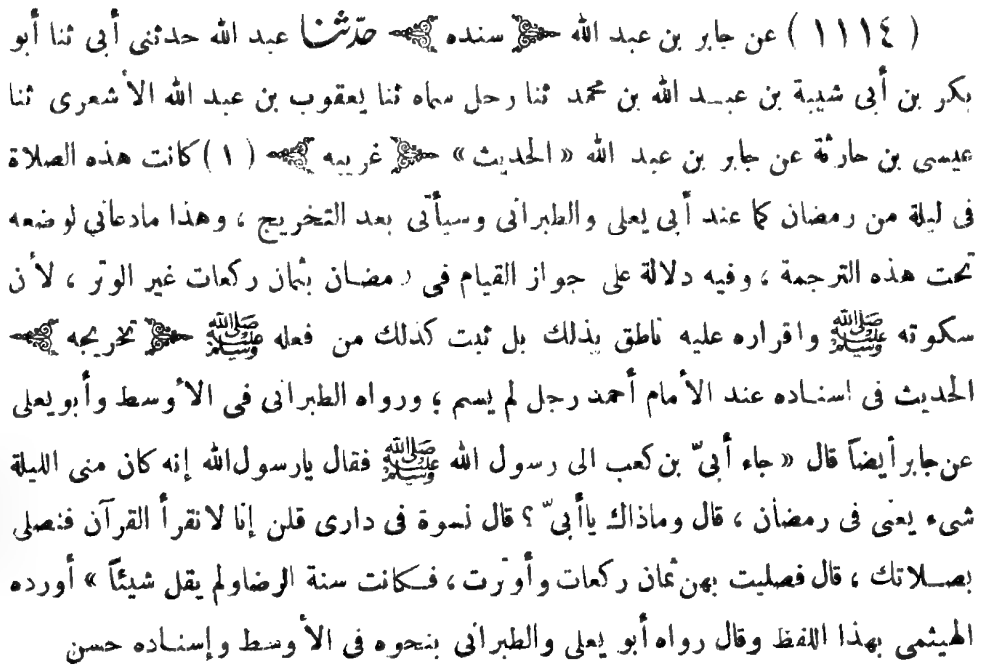 ( ١١١٤ ) عن جابر بن عبد الله ﴿ سنده ﴾ حدّثنا عبد الله حدثنى أبى ثنا أبو
بكر بن أبى شيبة بن عبد الله بن محمد ثنا رجل سماه ثنا يعقوب بن عبد الله الأشعرى ثنا
عيسى بن حارثة عن جابر بن عبد الله « الحديث » ﴿ غريبه ﴾ ( ١ ) كانت هذه الصلاة
فى ليلة من رمضان كما عند أبى يعلى والطبرانى وسيأتى بعد التخريج ، وهذا مادعانى لوضعه
تحت هذه الترجمة ، وفيه دلالة على جواز القيام فى رمضان بثمان ركعات غير الوتر ، لأن
سكوته ﷺ واقراره عليه ناطق بذلك بل ثبت كذلك من فعله ﷺ ﴿ تخريجه ﴾
الحديث فى اسناده عند الأمام أحمد رجل لم يسم ؛ ورواه الطبرانى فى الأوسط وأبو يعلى
عن جابر أيضاً قال « جاء أبىّ بن كعب الى رسول الله ﷺ فقال يارسول الله إنه كان منى الليلة
شىء يعنى فى رمضان ، قال وماذاك ياأبىّ ؟ قال نسوة فى دارى قلن إنا لانقرأ القرآن فنصلى
بصلاتك ، قال فصليت بهن ثمان ركعات وأوترت ، فكانت سنة الرضاولم يقل شيئاً » أورده
الهيثمى بهذا اللفظ وقال رواه أبو يعلى والطبرانى بنحوه فى الأوسط وإسناده حسن